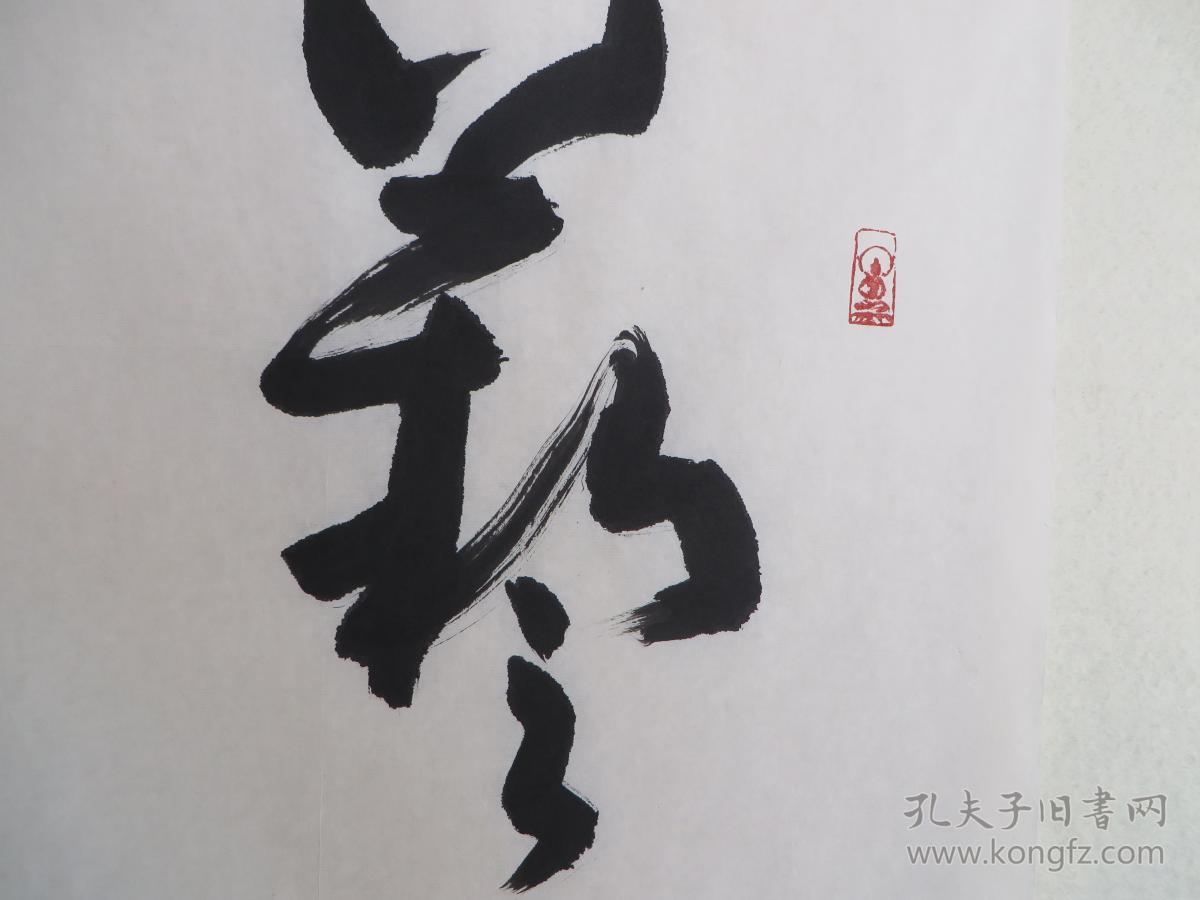 藝
孔夫子旧书网
www.kongfz.com